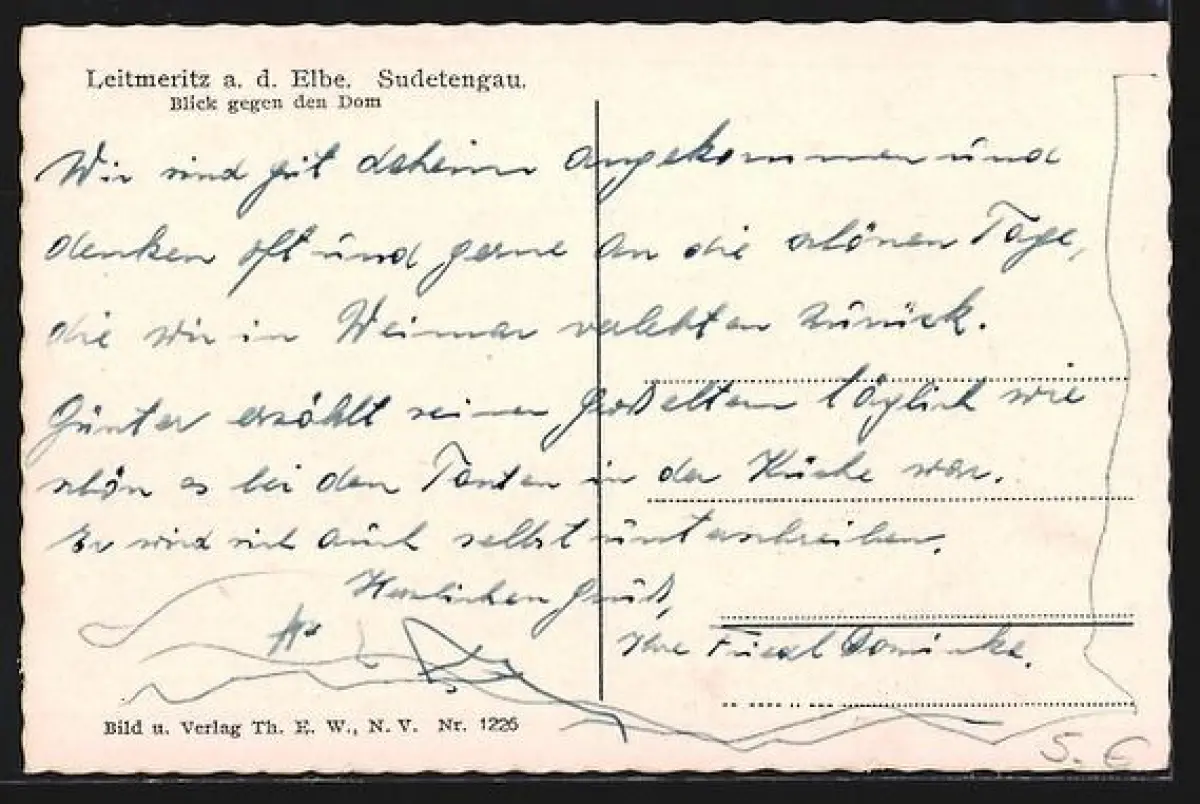 Leitmeritz a. d. Elbe. Sudetengau.
Blick gegen den Dom
Wir sind gut daheim angekommen und
denken oft und gerne an die schönen Tage,
die wir in Weimar verlebten zurück.
Günter erzählt seinen Großeltern täglich wie
schön es bei den Tanten in der Küche war.
Er wird sich auch selbst unterschreiben.
Herzlichen Gruß,
Ihre Friedl
Bild u. Verlag Th. E. W., N. V. Nr. 1226
S. E